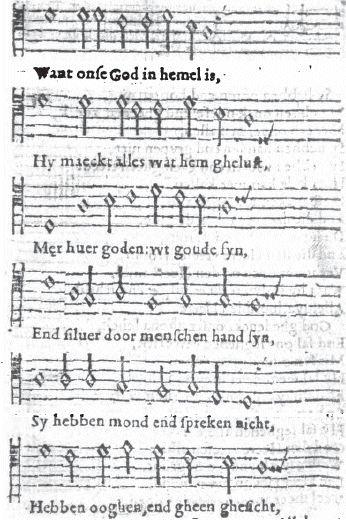 Want onſe God in hemel is,
Hy maeckt alles wat hem gheluſt,
Mer huer goden: wt goude ſyn,
End ſiluer door menſchen hand ſyn,
Sy hebben mond end ſpreken nicht,
Hebben ooghen, end gheen gheſicht,